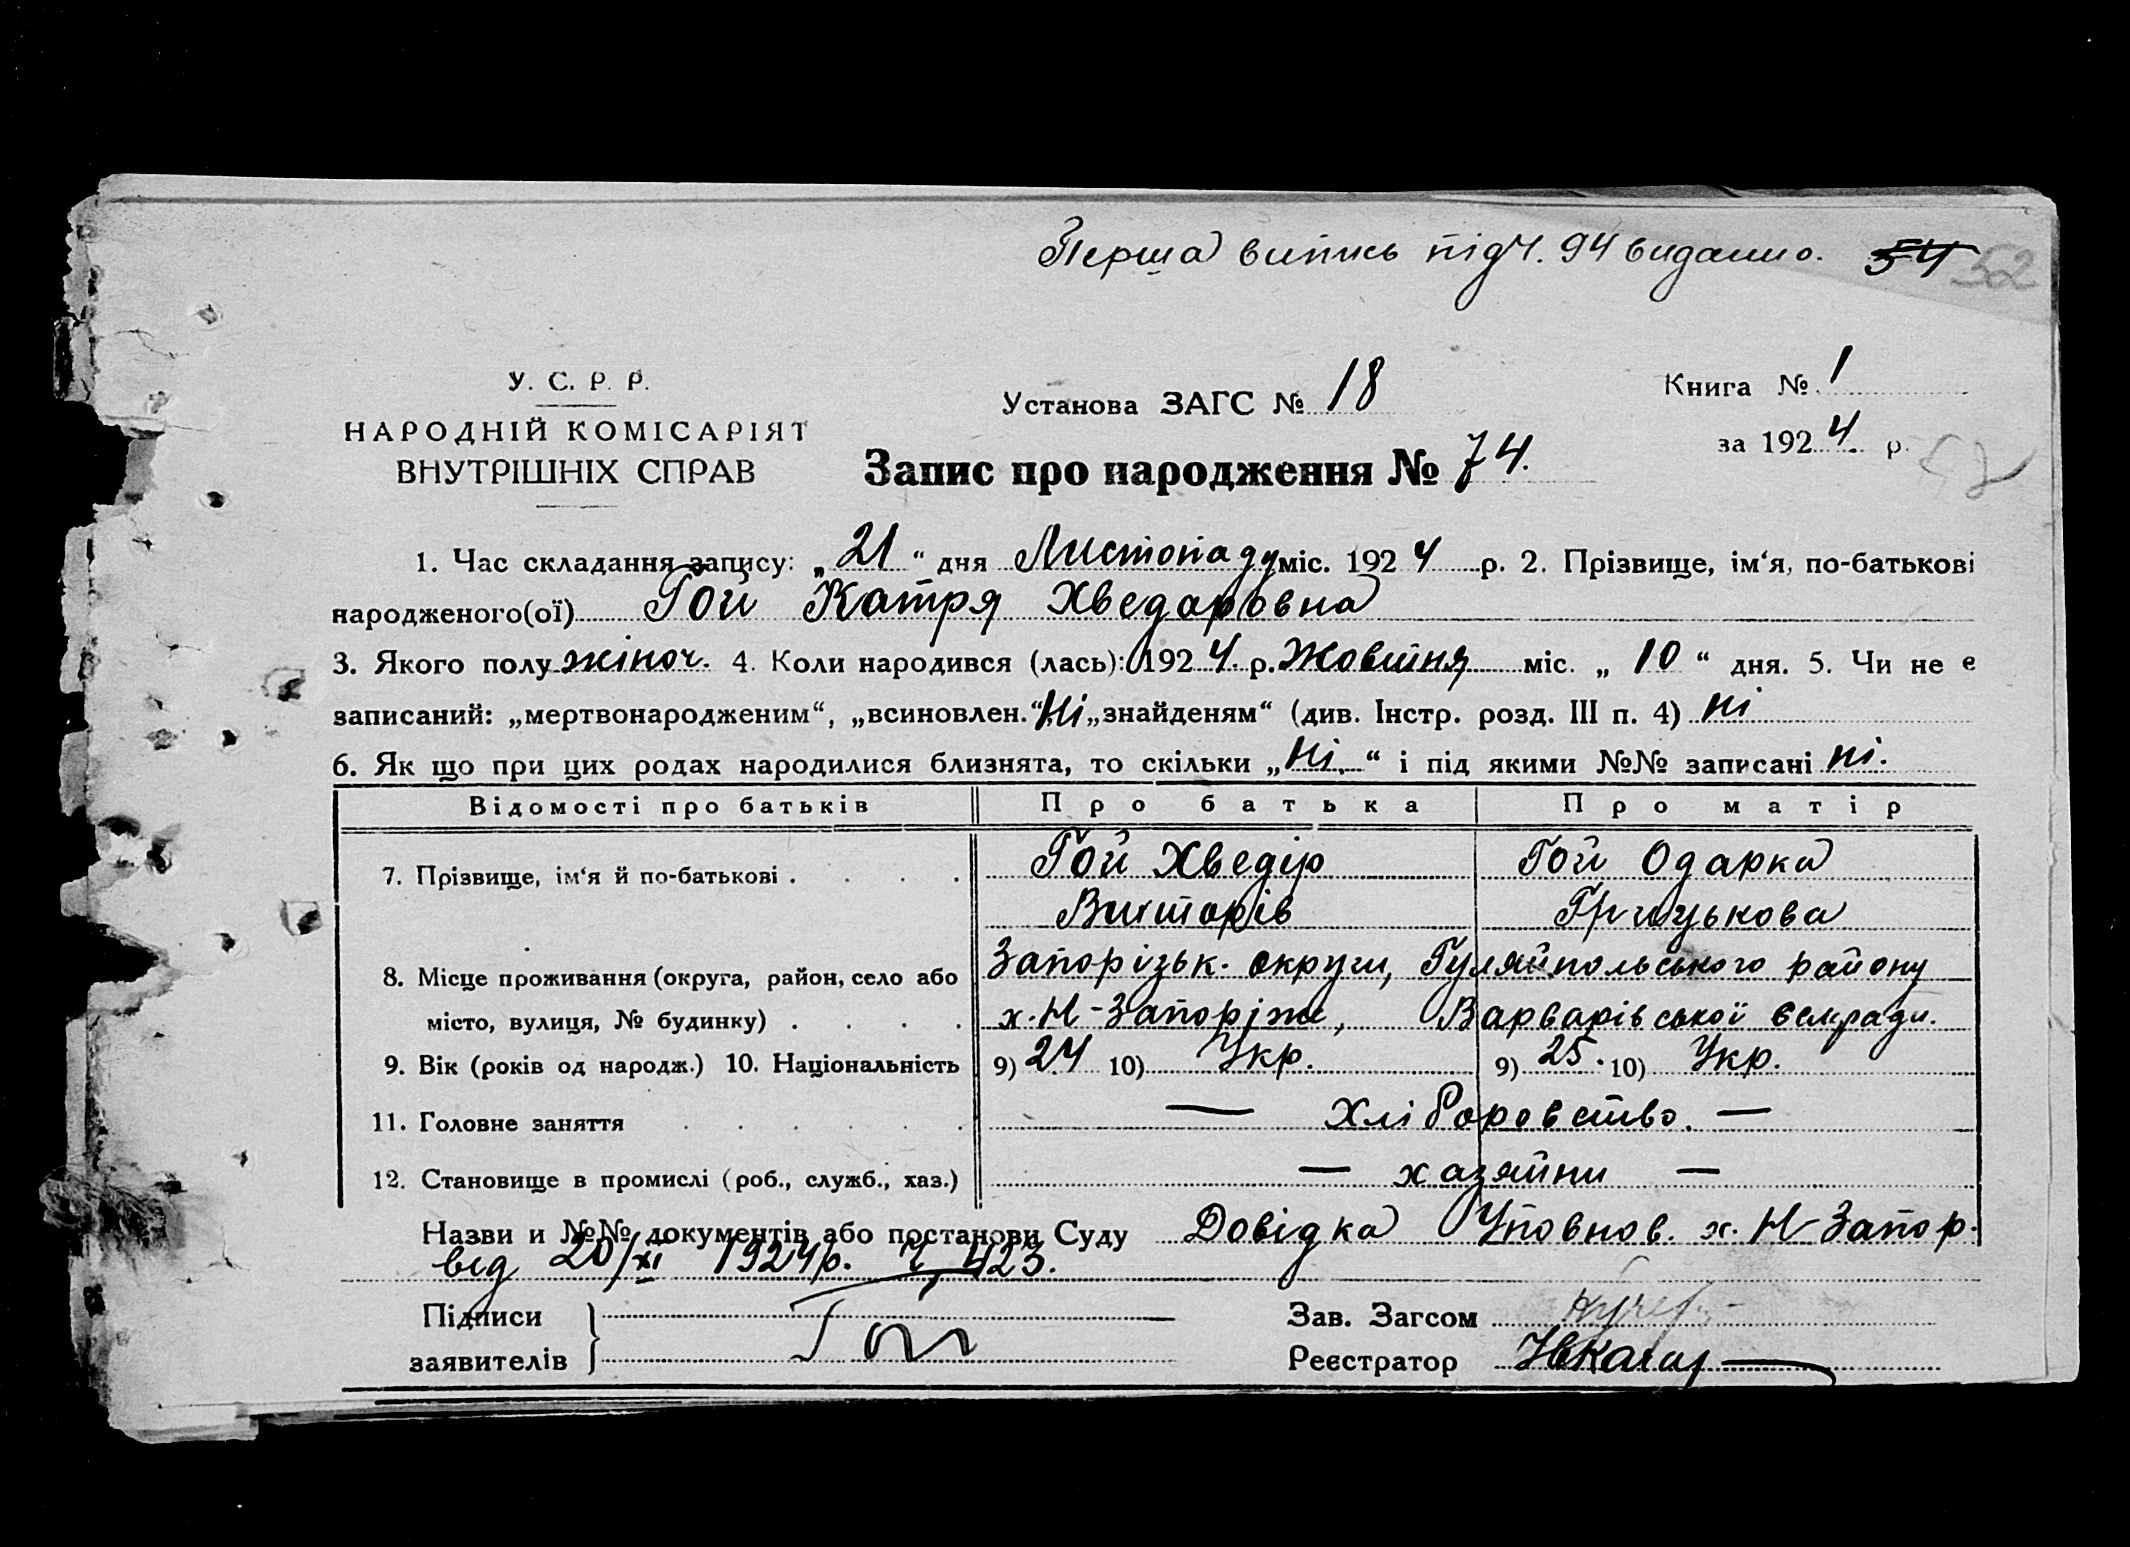 Перша випись під Ч. 94 видано. 54 52
У. С. Р. Р.
НАРОДНІЙ КОМІСАРІЯТ
ВНУТРІШНІХ СПРАВ
Установа ЗАГС № 18
Книга № 1
за 1924 р.
Запис про народження № 74.
1. Час складання запису: „21“ дня Листопаду міс. 1924 р. 2. Прізвище, ім‘я, по-батькові
народженого(ої) Гой Катря Хведоровна
3. Якого полу жіноч. 4. Коли народився (лась): 1924 р. Жовтня міс. „10“ дня. 5. Чи не є
записаний: „мертвонародженим“, „всиновлен.“ Ні „знайденям“ (див. Інстр. розд. III п. 4) ні
6. Як що при цих родах народилися близнята, то скільки „Ні“ і під якими №№ записані ні.
Відомості про батьків Про батька Про матір
7. Прізвище, ім‘я й по-батькові . . . . Гой Хведір Гой Одарка
Вікторів Грицькова
8. Місце проживання (округа, район, село або Запорізьк. округи, Гуляйпольського району
місто, вулиця, № будинку) . . . . х. Н-Запоріжє, Варварівської сельради.
9. Вік (років од народж.) 10. Національність 9) 24 10) Укр. 9) 25. 10) Укр.
11. Головне заняття . . . . . . — Хліборовство. —
12. Становище в промислі (роб., служб., хаз.) — хазяйни —
Назви и №№ документів або постанови Суду Довідка Уповнов. х. Н-Запор.
від 20/XI 1924 р. Ч. 423.
Підписи
заявителів
Гой
Зав. Загсом
Реєстратор